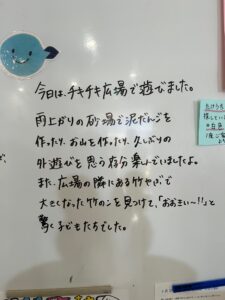 今日は、チキチキ広場で遊びました。
雨上がりの砂場で泥だんごを
作ったり、お山を作ったり、久しぶりの
外遊びを思う存分楽しんでいましたよ。
また、広場の隣にある竹やぶで
大きくなった竹の子を見つけて、「おおきい〜!!」と
驚く子どもたちでした。